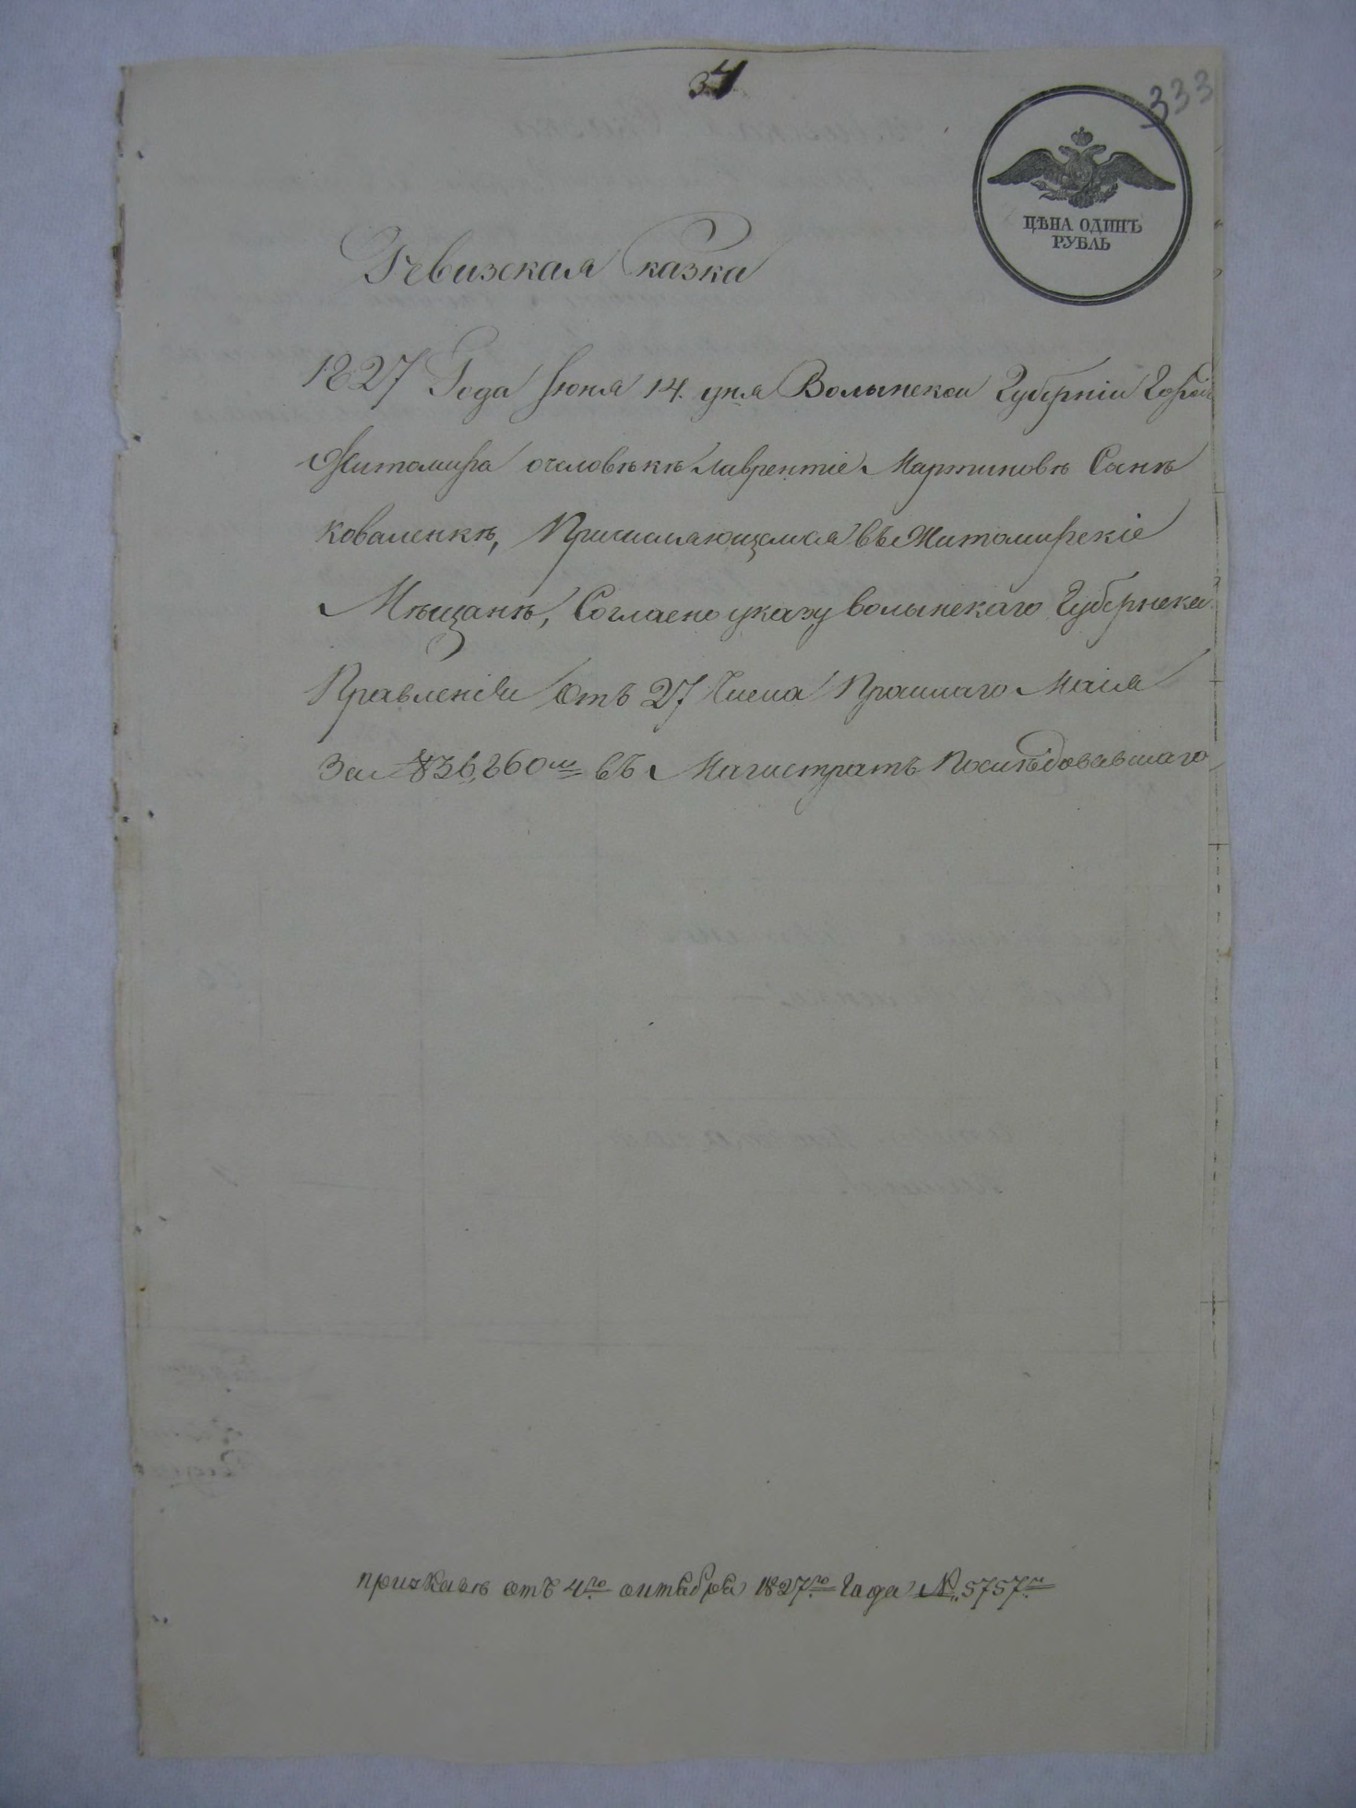 34
333
ЦѢНА ОДИНЪ
РУБЛЬ
Ревизская Сказка
1827 Года Іюня 14. дня Волынской Губерніи
Житомира о человѣкѣ Лаврентіе Мартиновѣ Сынѣ
Коваленкѣ, Причисляющемся въ Житомирскіе
Мѣщанѣ, Согласно указу Волынскаго Губернска
Правленія отъ 27 Числа Прошлаго Маія
За № 36,260м въ Магистратъ Послѣдовавшаго
при указѣ отъ 4го октября 1827го Года № 5757м